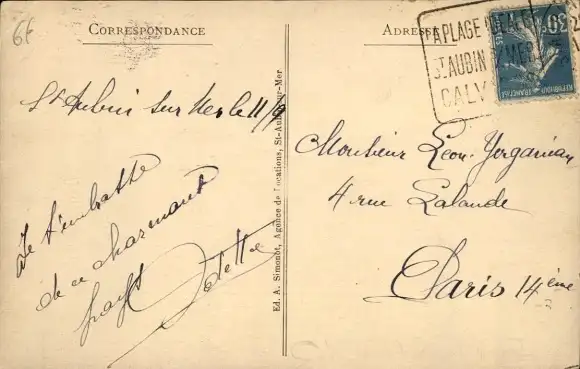 6f
CORRESPONDANCE
St Aubin sur Mer le 11/9
Je t'embrasse
de ce charmant
pays
Odette
Ed. A. Simonot, Agence de Locations, St-Aubin-sur-Mer
ADRESSE
LA PLAGE IDEALE
ST AUBIN S/ MER
CALV
30
REPUBLIQUE FRANÇAISE
Monsieur Léon
4 rue Lalande
Paris 14ème